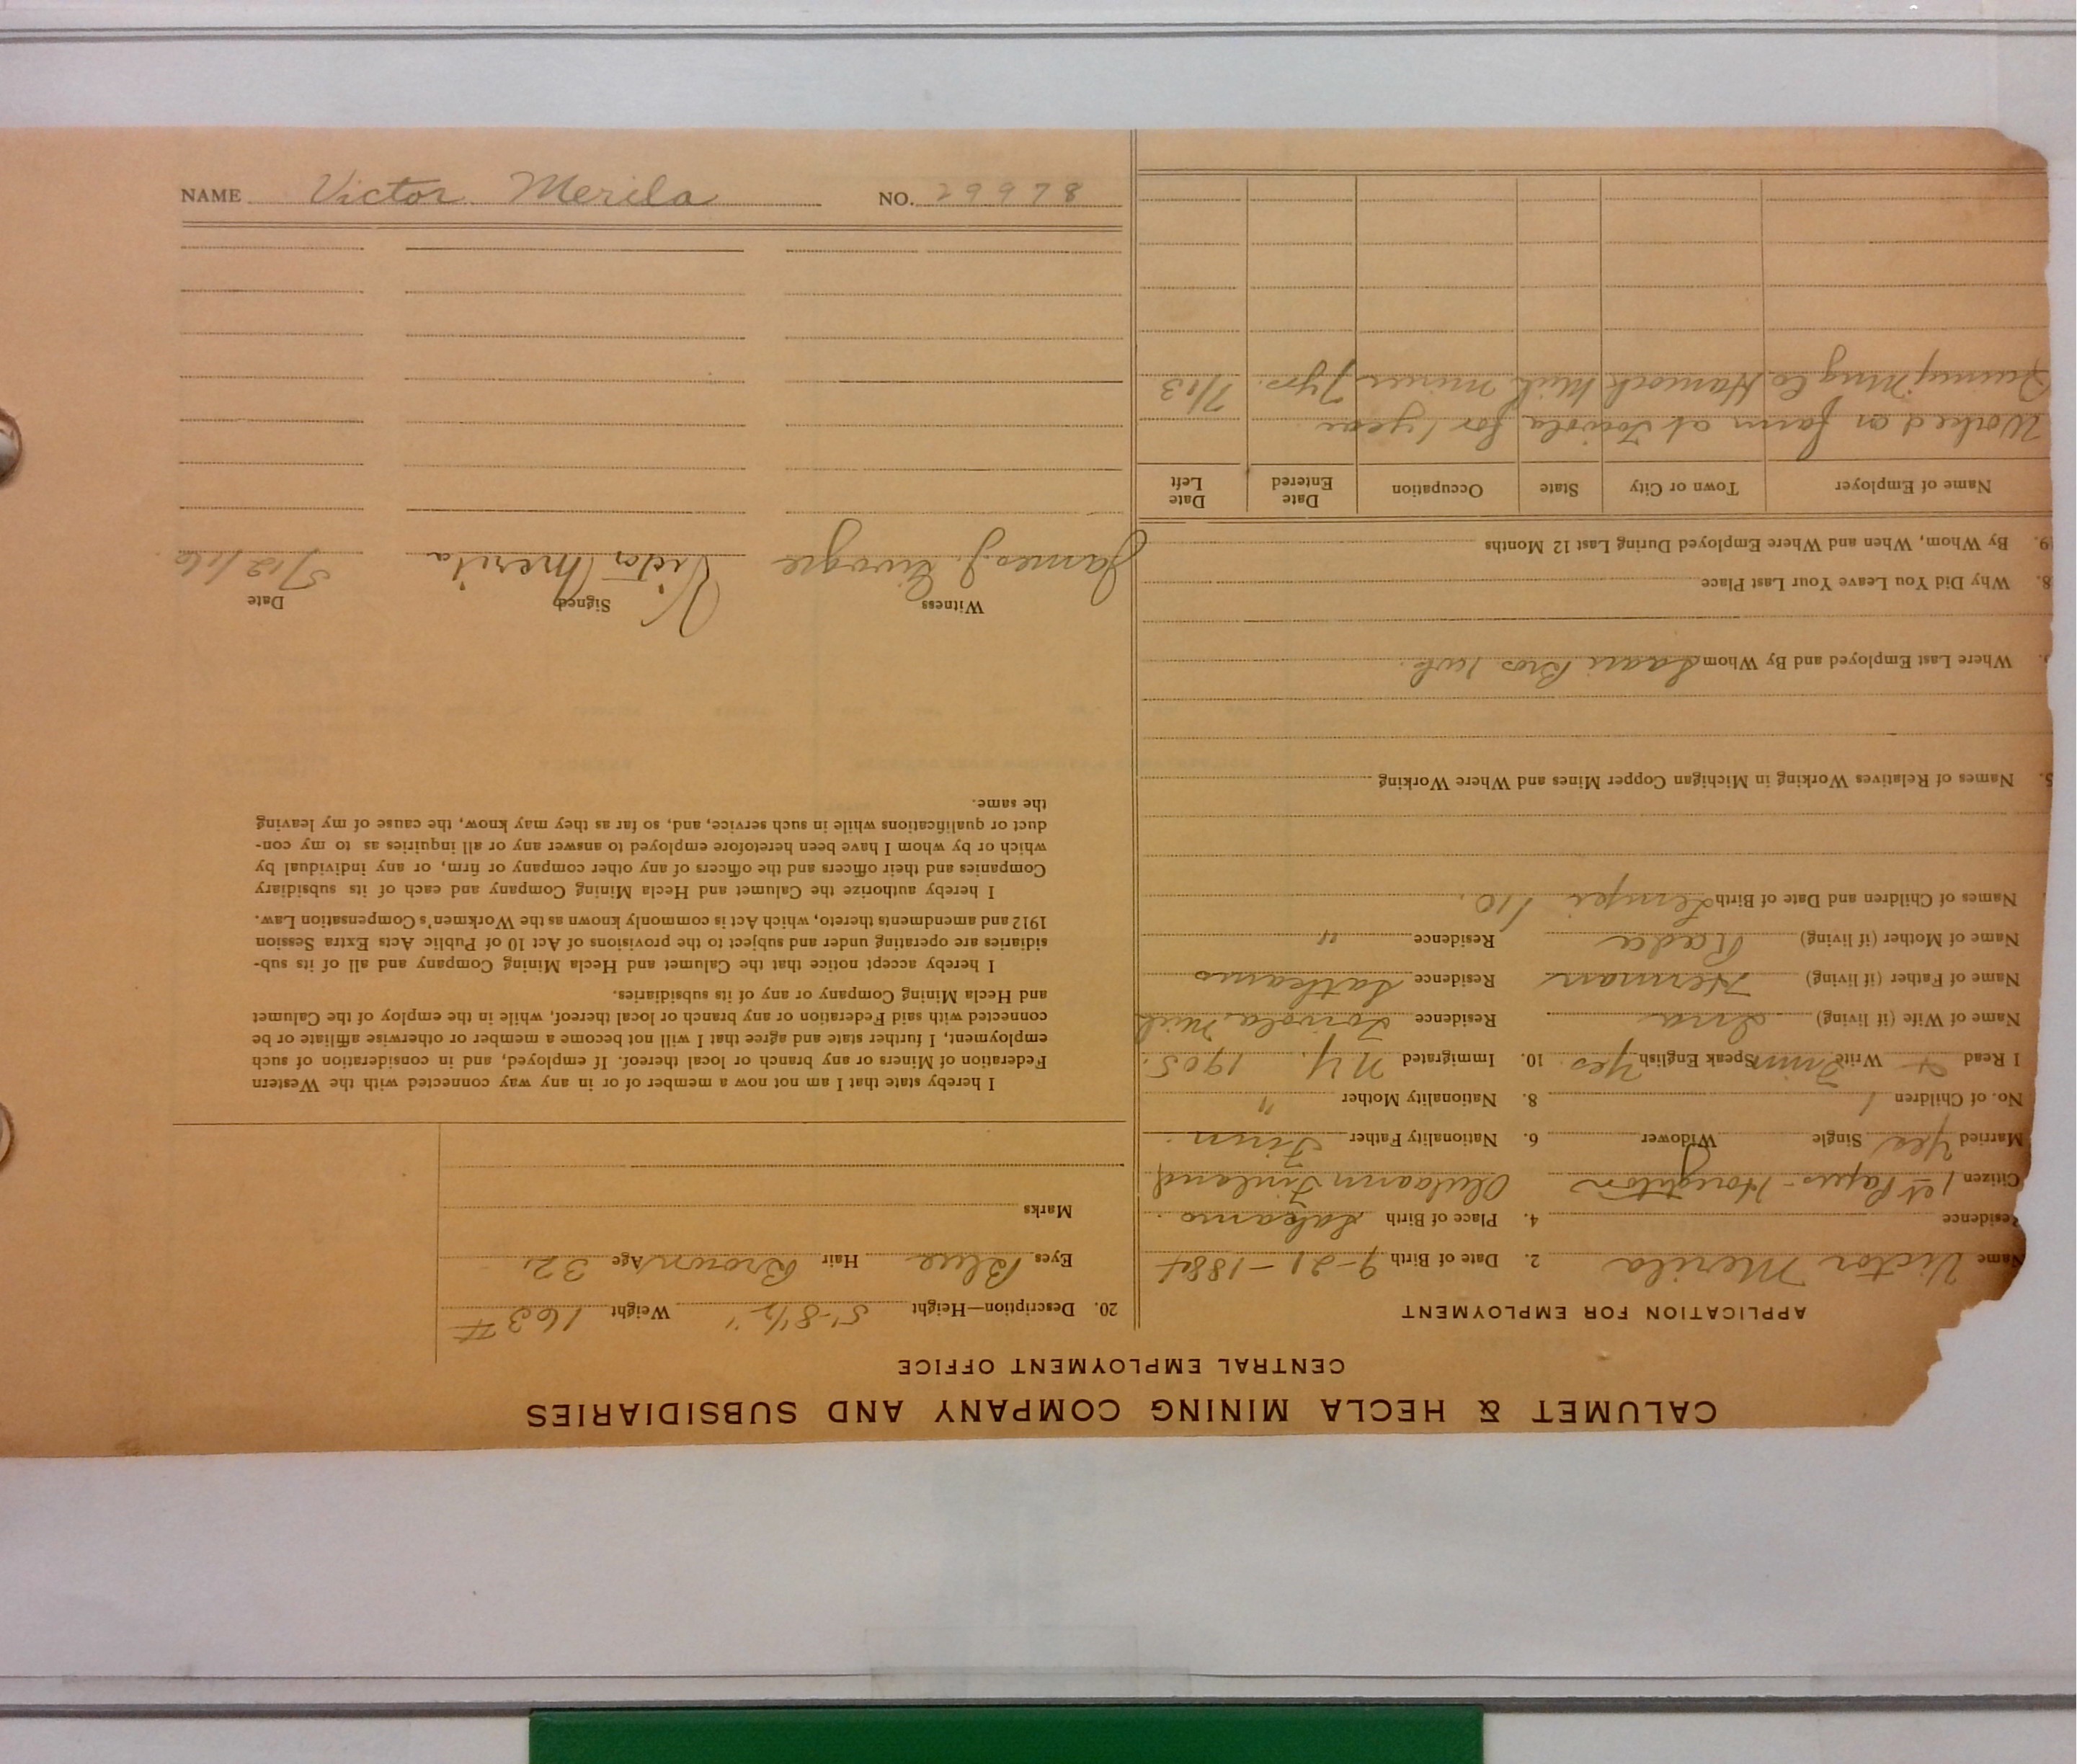 NAME Victor Merila NO. 29978
CALUMET & HECLA MINING COMPANY AND SUBSIDIARIES
CENTRAL EMPLOYMENT OFFICE
APPLICATION FOR EMPLOYMENT
Name Victor Merila 2. Date of Birth 9-21-1884
Residence 4. Place of Birth
Citizen 1st Papers - Houghton Finland
Married Yes Single Widower 6. Nationality Father Finn.
No. of Children 1 8. Nationality Mother "
I Read & Write Finn Speak English Yes. 10. Immigrated N.Y. 1905.
Name of Wife (if living) Residence Toivola Mich
Name of Father (if living) Herman Residence
Name of Mother (if living) Residence "
Names of Children and Date of Birth Lempi 1/10.
5. Names of Relatives Working in Michigan Copper Mines and Where Working
Where Last Employed and By Whom Bros 1 wk.
8. Why Did You Leave Your Last Place
19. By Whom, When and Where Employed During Last 12 Months
Name of Employer Town or City State Occupation Date Entered Date Left
Worked on farm at Toivola for 1 year
Quincy Mng Co. Hancock Mich miner 7 yrs. 7/13
20. Description—Height 5'-8½" Weight 163 #
Eyes Blue Hair Brown Age 32
Marks
I hereby state that I am not now a member of or in any way connected with the Western
Federation of Miners or any branch or local thereof. If employed, and in consideration of such
employment, I further state and agree that I will not become a member or otherwise affiliate or be
connected with said Federation or any branch or local thereof, while in the employ of the Calumet
and Hecla Mining Company or any of its subsidiaries.
I hereby accept notice that the Calumet and Hecla Mining Company and all of its sub-
sidiaries are operating under and subject to the provisions of Act 10 of Public Acts Extra Session
1912 and amendments thereto, which Act is commonly known as the Workmen's Compensation Law.
I hereby authorize the Calumet and Hecla Mining Company and each of its subsidiary
Companies and their officers and the officers of any other company or firm, or any individual by
which or by whom I have been heretofore employed to answer any or all inquiries as to my con-
duct or qualifications while in such service, and, so far as they may know, the cause of my leaving
the same.
Witness Signed Date
James J. Victor Merila 5/12/16